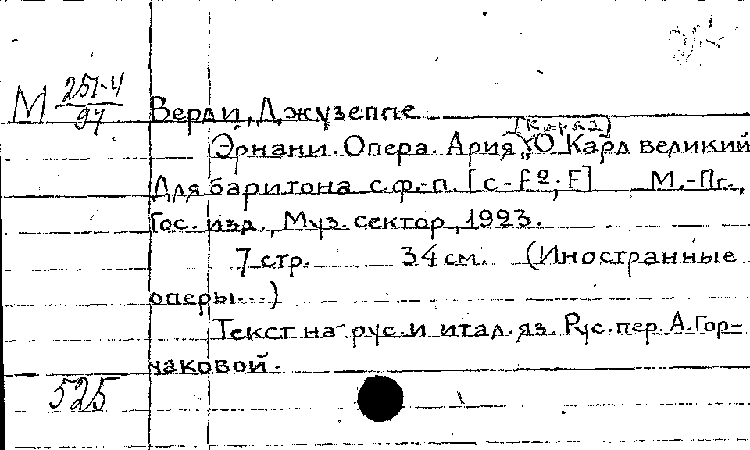 М 251-4
97
Верди, Джузеппе
[Карла]
Эрнани. Опера. Ария "О Карл великий
Для баритона с ф.-п. [c-f²; F] М.-Пг.,
Гос. изд., Муз. сектор, 1923.
7 стр. 34 см. (Иностранные
оперы...)
Текст на рус. и итал. яз. Рус. пер. А. Гор-
чаковой.
525